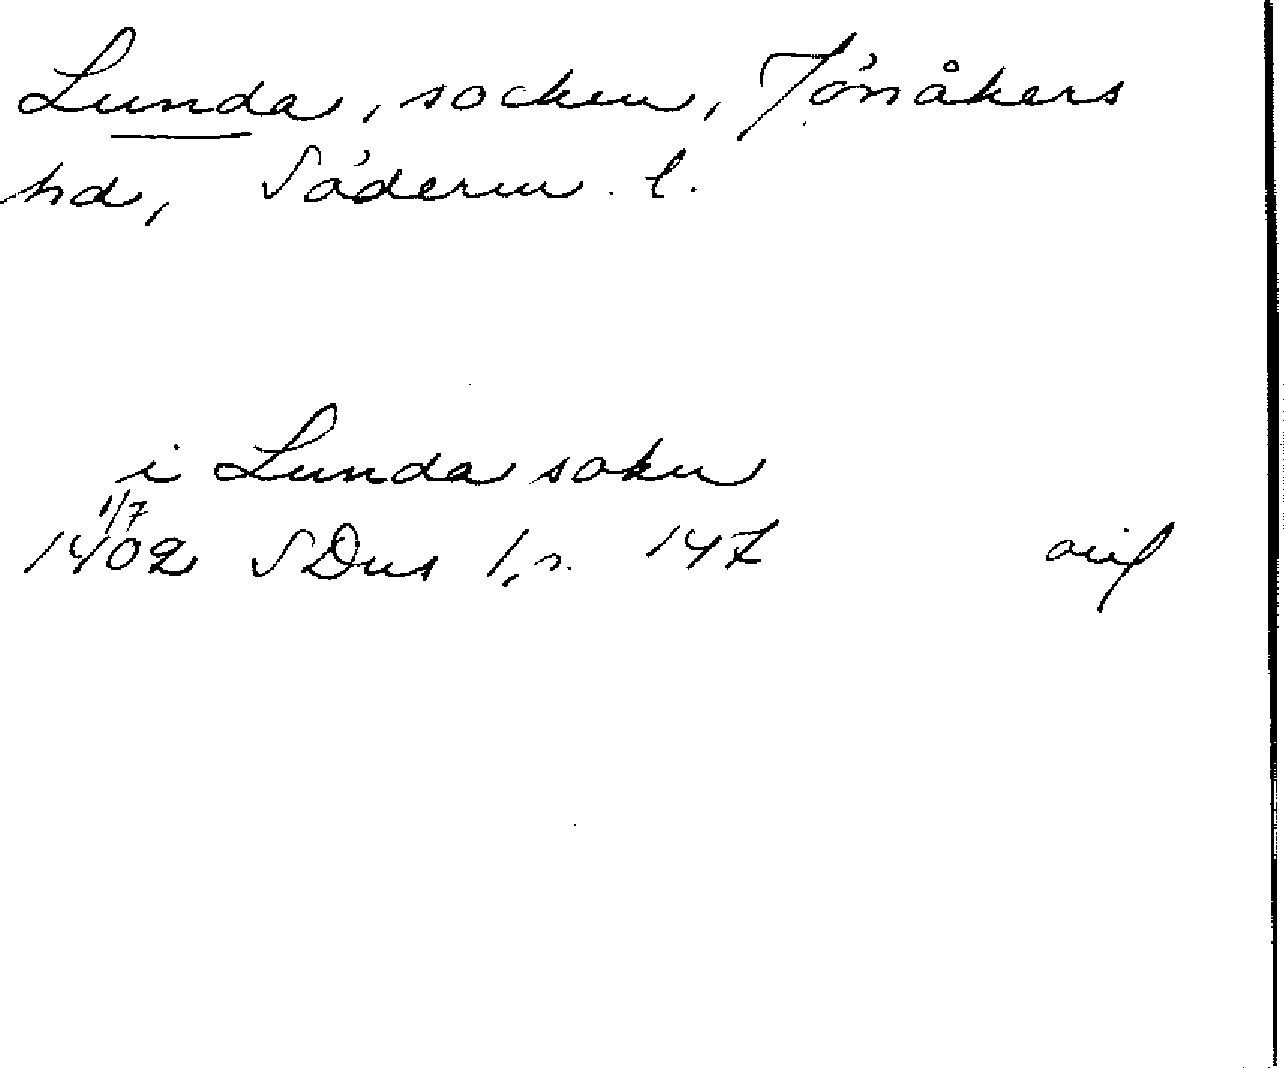 Lunda, socken, Jönåkers
hd, Söderm. l.
i Lunda sokn
1/7
1402 SDns 1, s. 147 orig